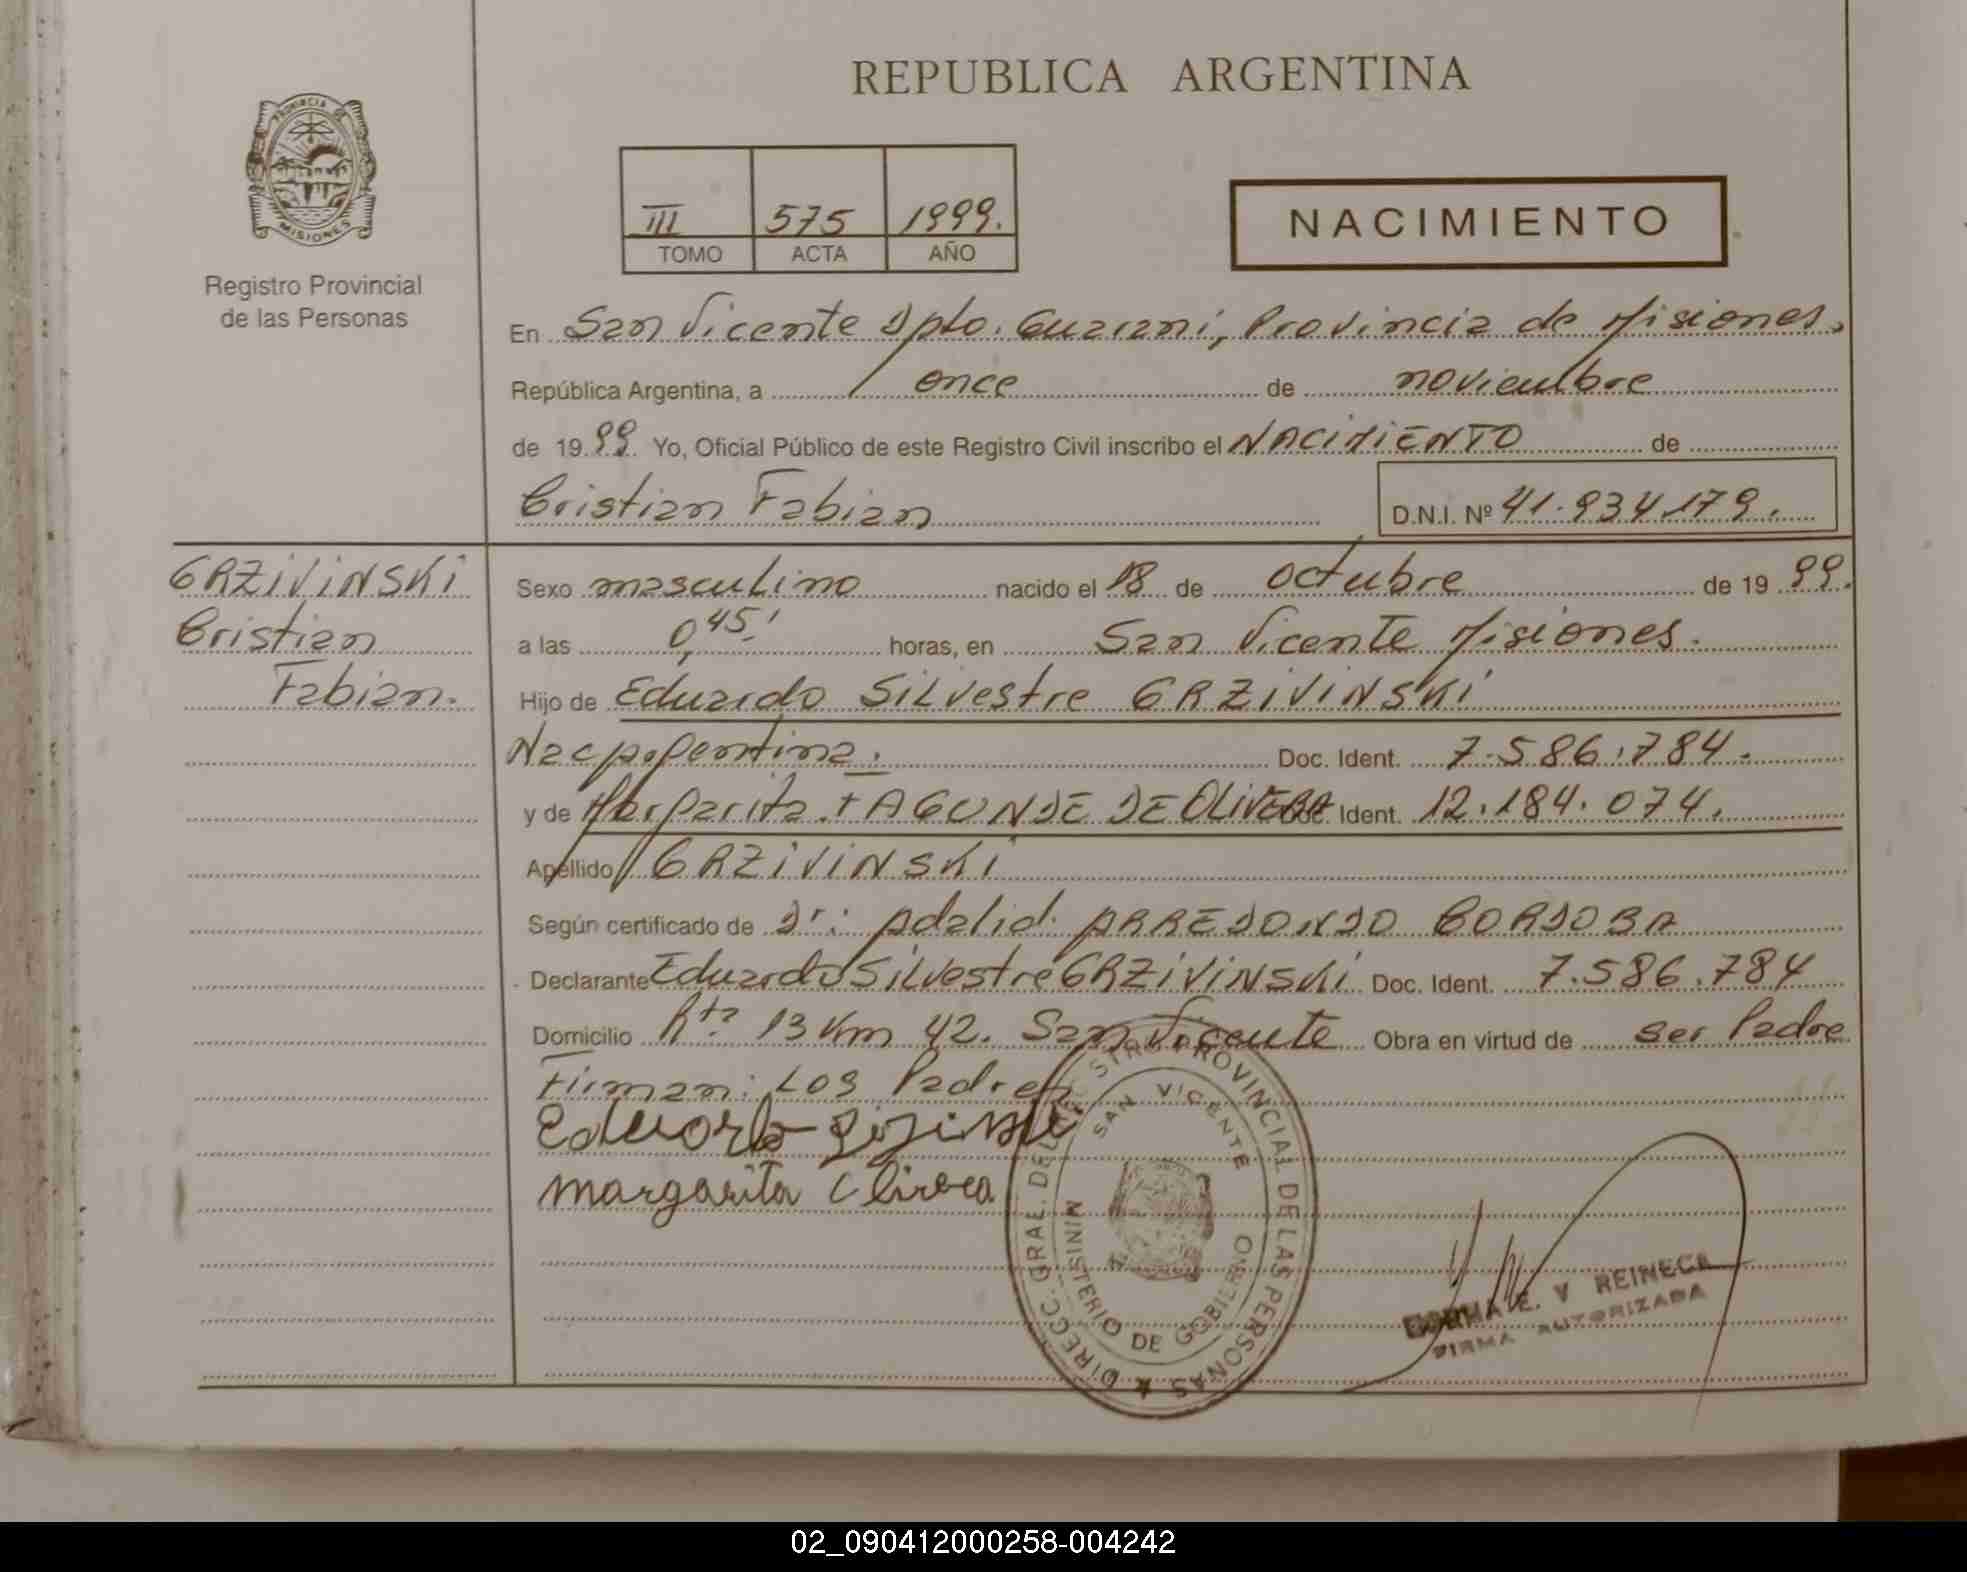 REPUBLICA ARGENTINA
PROVINCIA DE MISIONES
Registro Provincial
de las Personas
III 575 1999.
TOMO ACTA AÑO
NACIMIENTO
En San Vicente Dpto. Guarani, Provincia de Misiones.
República Argentina, a once de noviembre
de 1999. Yo, Oficial Público de este Registro Civil inscribo el NACIMIENTO de
Cristian Fabian D.N.I. Nº 41.934.179.
GRZiViNSKi
Cristian
Fabian.
Sexo masculino nacido el 18 de octubre de 1999.
a las 0,45' horas, en San Vicente Misiones.
Hijo de Eduardo Silvestre GRZiViNSKi
Nac. Argentina. Doc. Ident. 7.586.784.
y de Margarita FAGUNDE DE OLIVERA Doc. Ident. 12.184.074.
Apellido GRZiViNSKi
Según certificado de Dr: Adalid ARREDONDO CORDOBA
Declarante Eduardo Silvestre GRZiViNSKi Doc. Ident. 7.586.784
Domicilio Rta 13 Km 42. San Vicente Obra en virtud de ser Padre
Firman: Los Padres
Eduardo
margarita
DIRECC. GRAL. DEL REGISTRO PROVINCIAL DE LAS PERSONAS
SAN VICENTE
MINISTERIO DE GOBIERNO
E. V REINECK
FIRMA AUTORIZADA
02_090412000258-004242